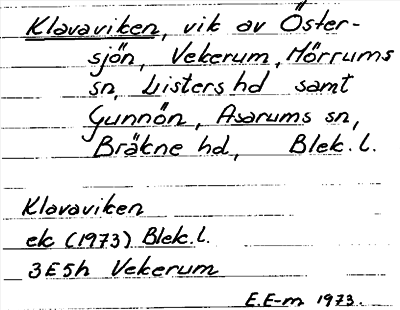 Klavaviken, vik av Öster-
sjön, Vekerum, Mörrums
sn, Listers hd samt
Gunnön, Asarums sn,
Bräkne hd, Blek. l.
Klavaviken
ek (1973) Blek. l.
3E5h Vekerum
E.E-m 1973.